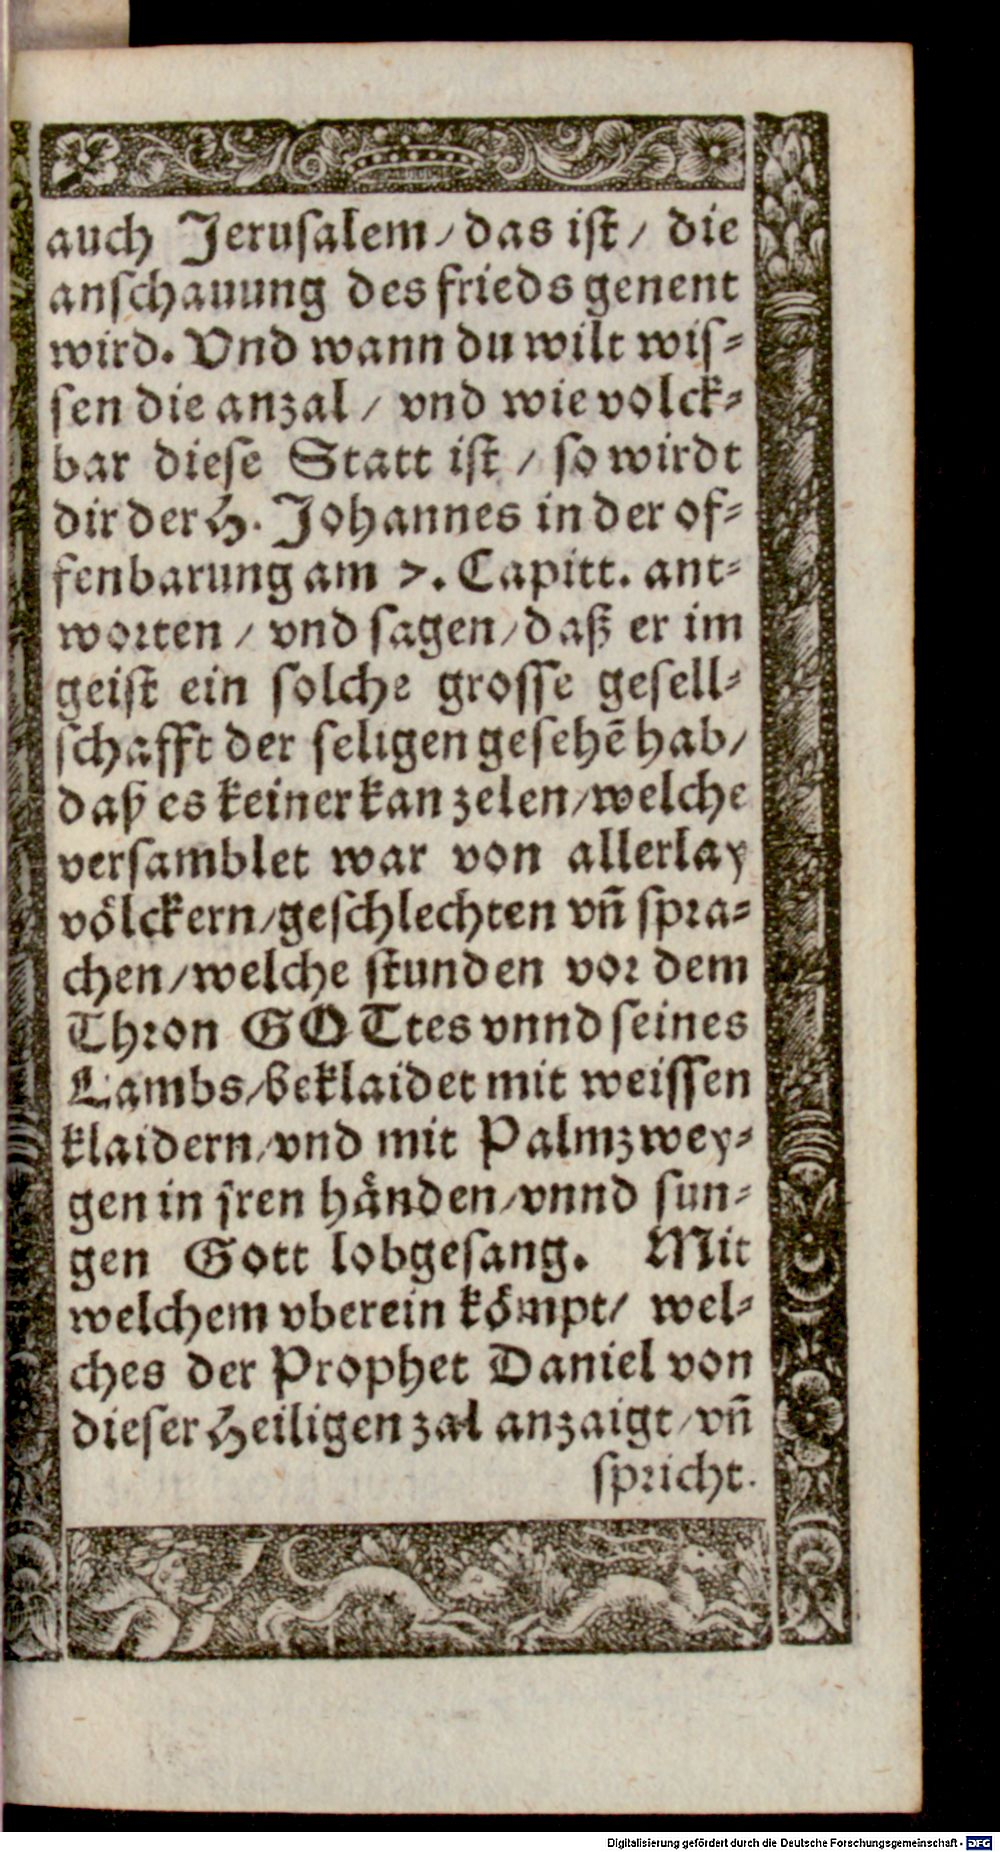 auch Jeruſalem/das iſt/ die
anſchauung des frieds genent
wird. Vnd wann du wilt wiſ⸗
ſen die anzal/ vnd wie volck⸗
bar dieſe Statt iſt/ ſo wirdt
dir der H. Johannes in der of⸗
fenbarung am 7. Capitt. ant⸗
woꝛten/ vnd ſagen/daß er im
geiſt ein ſolche groſſe geſell⸗
ſchafft der ſeligen geſehẽ hab/
daß es keiner kan zelen/welche
verſamblet war von allerlay
voͤlckern/geſchlechten vñ ſpꝛa⸗
chen/welche ſtunden voꝛ dem
Thꝛon GOTtes vnnd ſeines
Lambs/beklaidet mit weiſſen
klaidern/vnd mit Palmzwey⸗
gen in jren haͤnden/vnnd ſun⸗
gen Gott lobgeſang. Mit
welchem vberein koͤmpt/ wel⸗
ches der Prophet Daniel von
dieſer Heiligen zal anzaigt/vñ
ſpꝛicht.
Digitalisierung gefördert durch die Deutsche Forschungsgemeinschaft - DFG